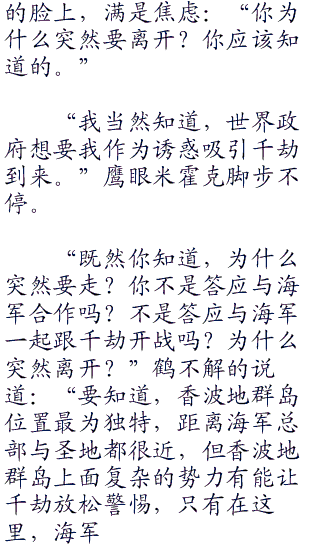 的脸上，满是焦虑：“你为
什么突然要离开？你应该知
道的。”
“我当然知道，世界政
府想要我作为诱惑吸引千劫
到来。”鹰眼米霍克脚步不
停。
“既然你知道，为什么
突然要走？你不是答应与海
军合作吗？不是答应与海军
一起跟千劫开战吗？为什么
突然离开？”鹤不解的说
道：“要知道，香波地群岛
位置最为独特，距离海军总
部与圣地都很近，但香波地
群岛上面复杂的势力有能让
千劫放松警惕，只有在这
里，海军